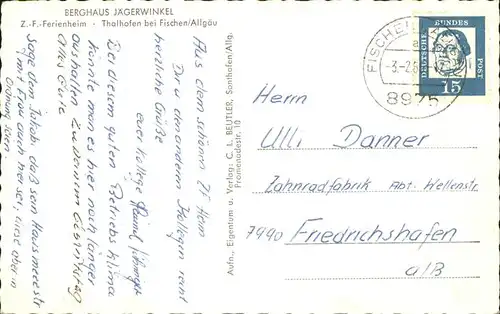 BERGHAUS JÄGERWINKEL
Z.-F.-Ferienheim · Thalhofen bei Fischen/Allgäu
Aus dem schönen ZF Heim
Dir u den anderen Kollegen recht
herzliche Grüße
Euer Kollege
Bei diesem guten Betriebsklima
könnte man es hier noch länger
aushalten. Zu Deinem Geburtstag
alles Gute
Sage dem Jakob, daß sein Hausmeister
mit Frau auch hier sei, diese
Aufn., Eigentum u. Verlag: C. L. BEUTLER, Sonthofen/Allg.
Promenadestr. 10
FISCHEN
-3.-2.6
8975
DEUTSCHE BUNDESPOST
15
Herrn
Ulli Danner
Zahnradfabrik Abt. Wellenstr.
7990 Friedrichshafen
a/B